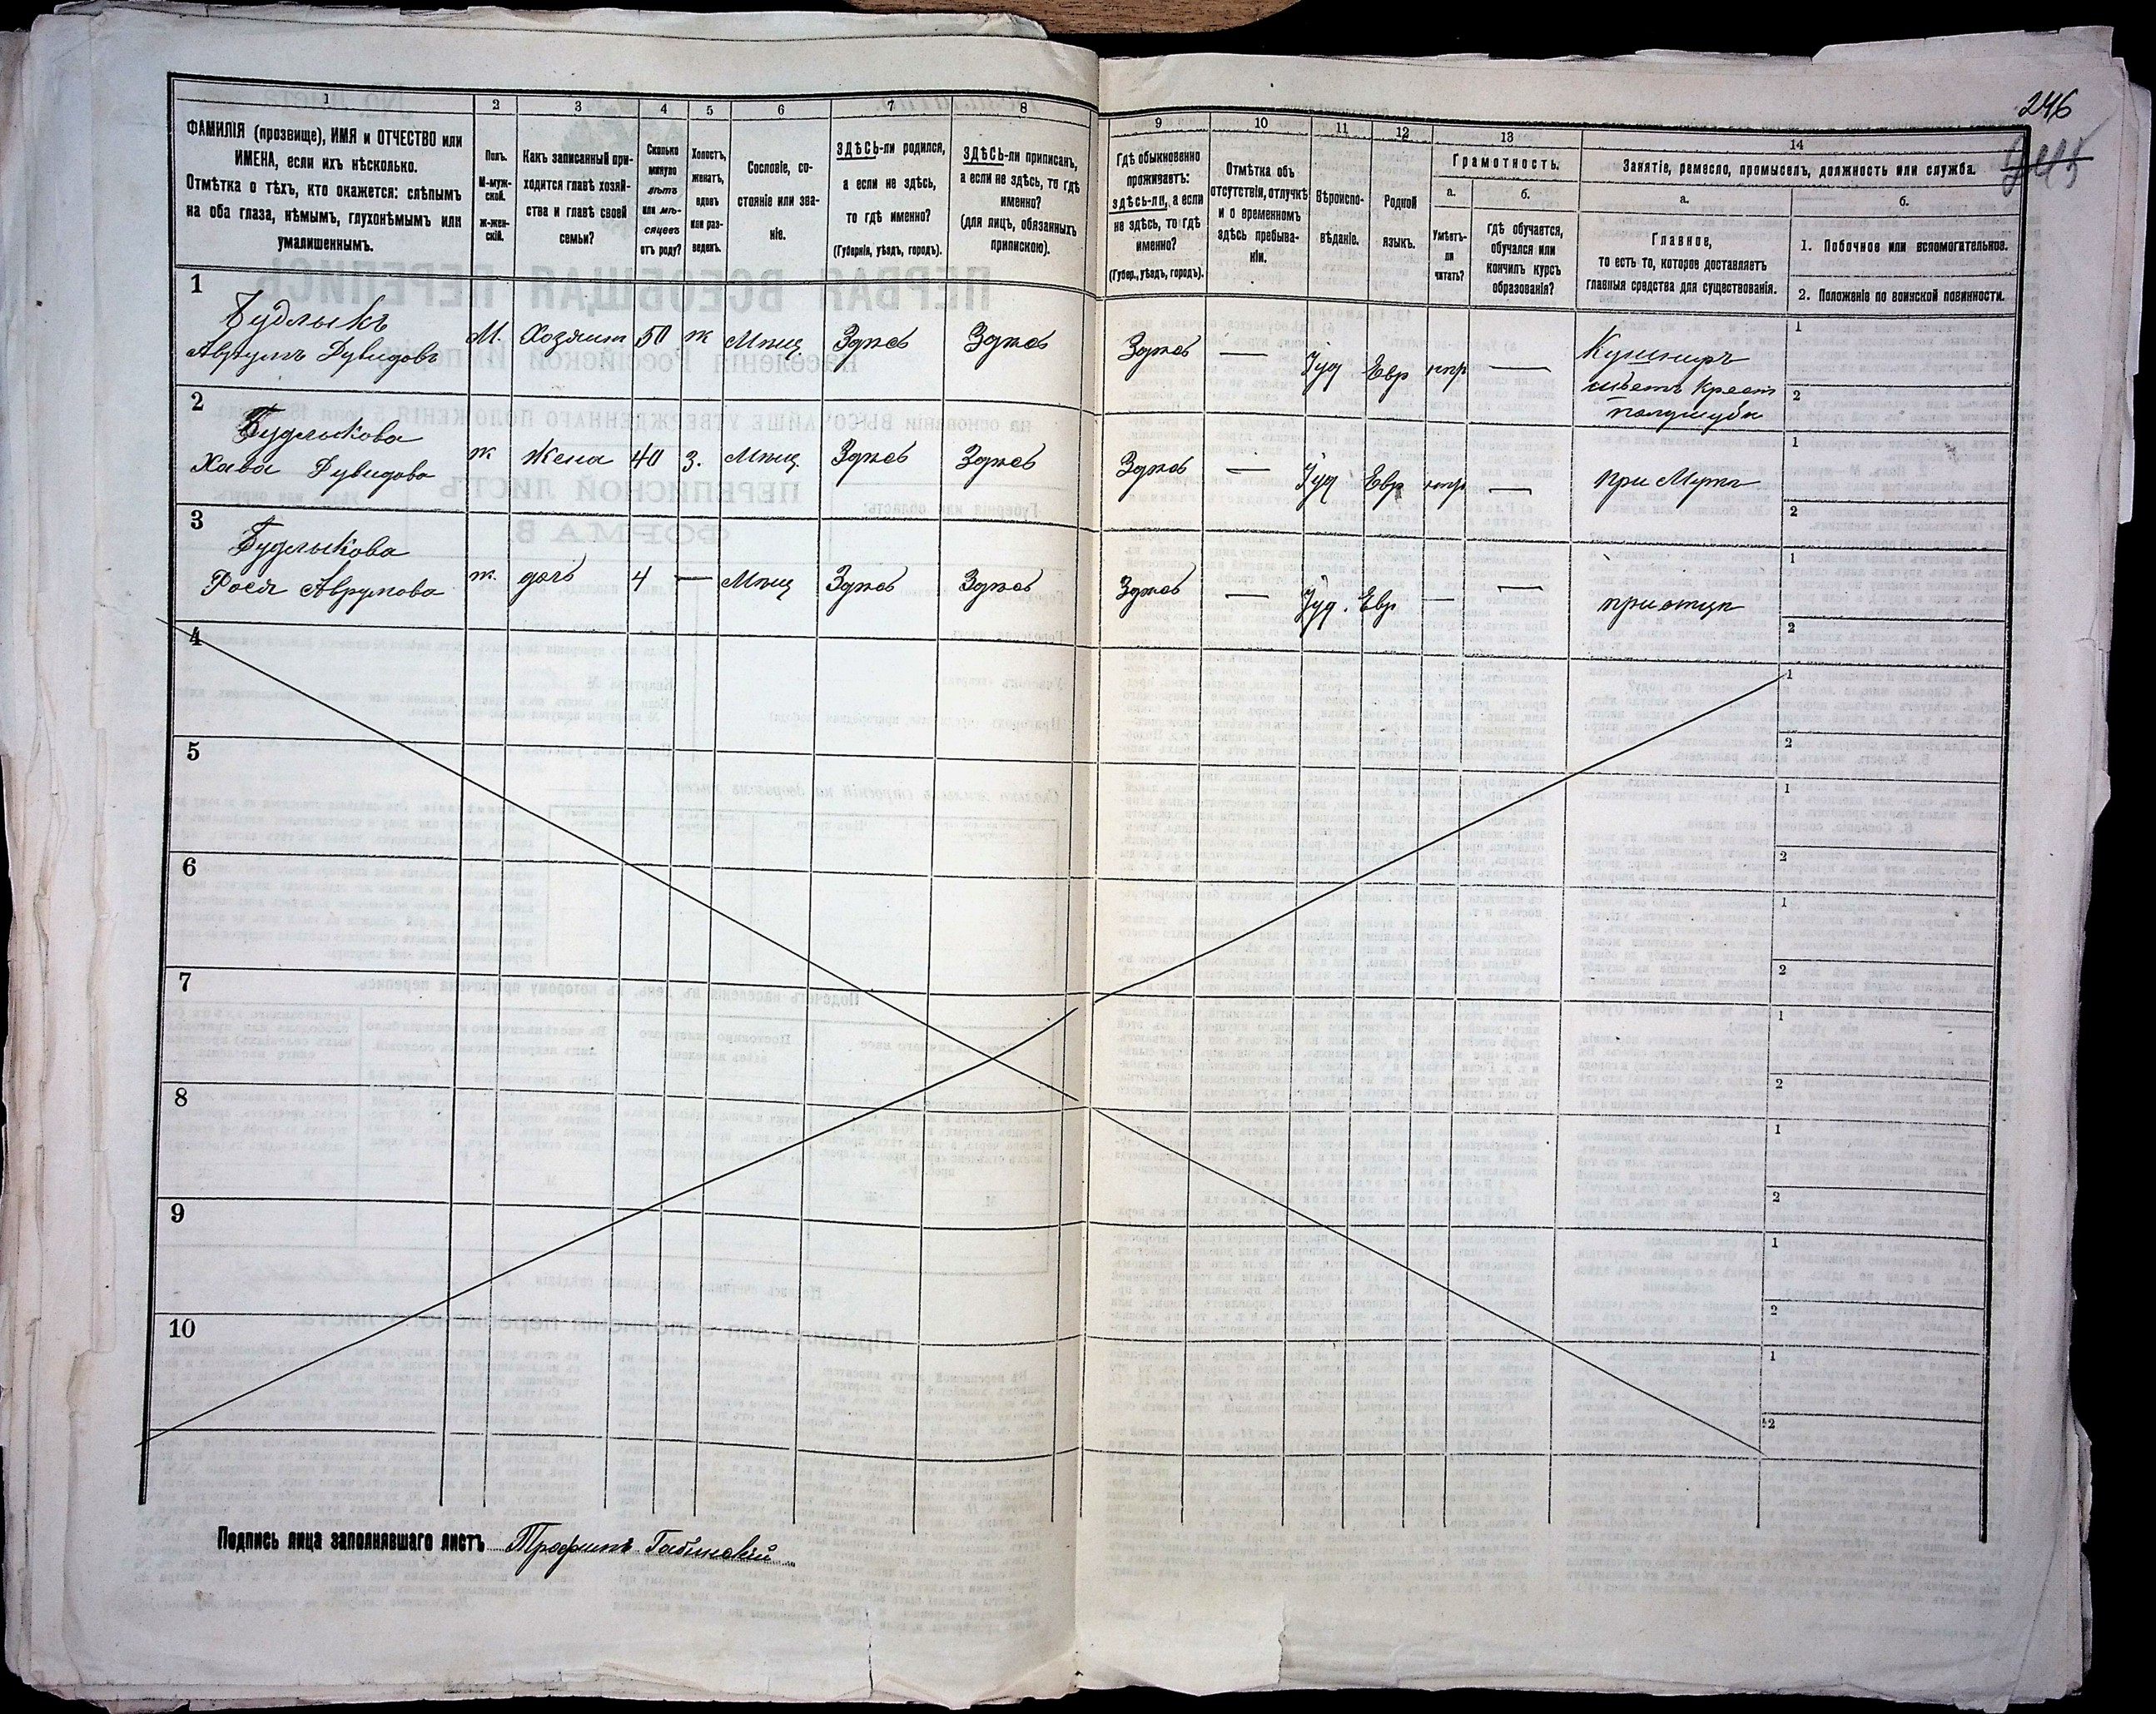 246
245
1
2
3
4
5
6
7
8
ФАМИЛІЯ (прозвище), ИМЯ и ОТЧЕСТВО или
ИМЕНА, если ихъ нѣсколько.
Отмѣтка о тѣхъ, кто окажется: слѣпымъ
на оба глаза, нѣмымъ, глухонѣмымъ или
умалишеннымъ.
Полъ.
М-муж-
ской.
Ж-жен-
скій.
Какъ записанный при-
ходится главѣ хозяй-
ства и главѣ своей
семьи?
Сколько
минуло
лѣтъ
или мѣ-
сяцевъ
отъ роду?
Холостъ,
женатъ,
вдовъ
или раз-
веденъ.
Сословіе, со-
стояніе или зва-
ніе.
ЗДѢСЬ-ли родился,
а если не здѣсь,
то гдѣ именно?
(Губернія, уѣздъ, городъ).
ЗДѢСЬ-ли приписанъ,
а если не здѣсь, то гдѣ
именно?
(для лицъ, обязанныхъ
припискою).
9
10
11
12
13
14
Гдѣ обыкновенно
проживаетъ:
здѣсь-ли, а если
не здѣсь, то гдѣ
именно?
(Губер., уѣздъ, городъ).
Отмѣтка объ
отсутствіи, отлучкѣ
и о временномъ
здѣсь пребыва-
ніи.
Вѣроиспо-
вѣданіе.
Родной
языкъ.
Грамотность.
а.
б.
Умѣетъ-
ли
читать?
Гдѣ обучается,
обучался или
кончилъ курсъ
образованія?
Занятіе, ремесло, промыселъ, должность или служба.
а.
б.
Главное,
то есть то, которое доставляетъ
главныя средства для существованія.
1. Побочное или вспомогательное.
2. Положеніе по воинской повинности.
1
Будлыкъ
Аврумъ Дувидовъ
М.
Хозяинъ
50
ж
Мѣщ
Здѣсь
Здѣсь
Здѣсь
—
Іуд
Евр
—
Кушниръ
шьетъ Крест
полушубк
1
2
2
Будлыкова
Хава Дувидова
ж
Жена
40
З.
Мѣщ.
Здѣсь
Здѣсь
Здѣсь
—
Іуд
Евр
—
при Мужѣ
1
2
3
Будлыкова
Рося Аврумова
ж.
дочь
4
—
Мѣщ
Здѣсь
Здѣсь
Здѣсь
—
Іуд.
Евр
—
—
при отцѣ
1
2
4
1
2
5
1
2
6
1
2
7
1
2
8
1
2
9
1
2
10
1
2
Подпись лица заполнявшаго листъ Трофимъ Габинскій